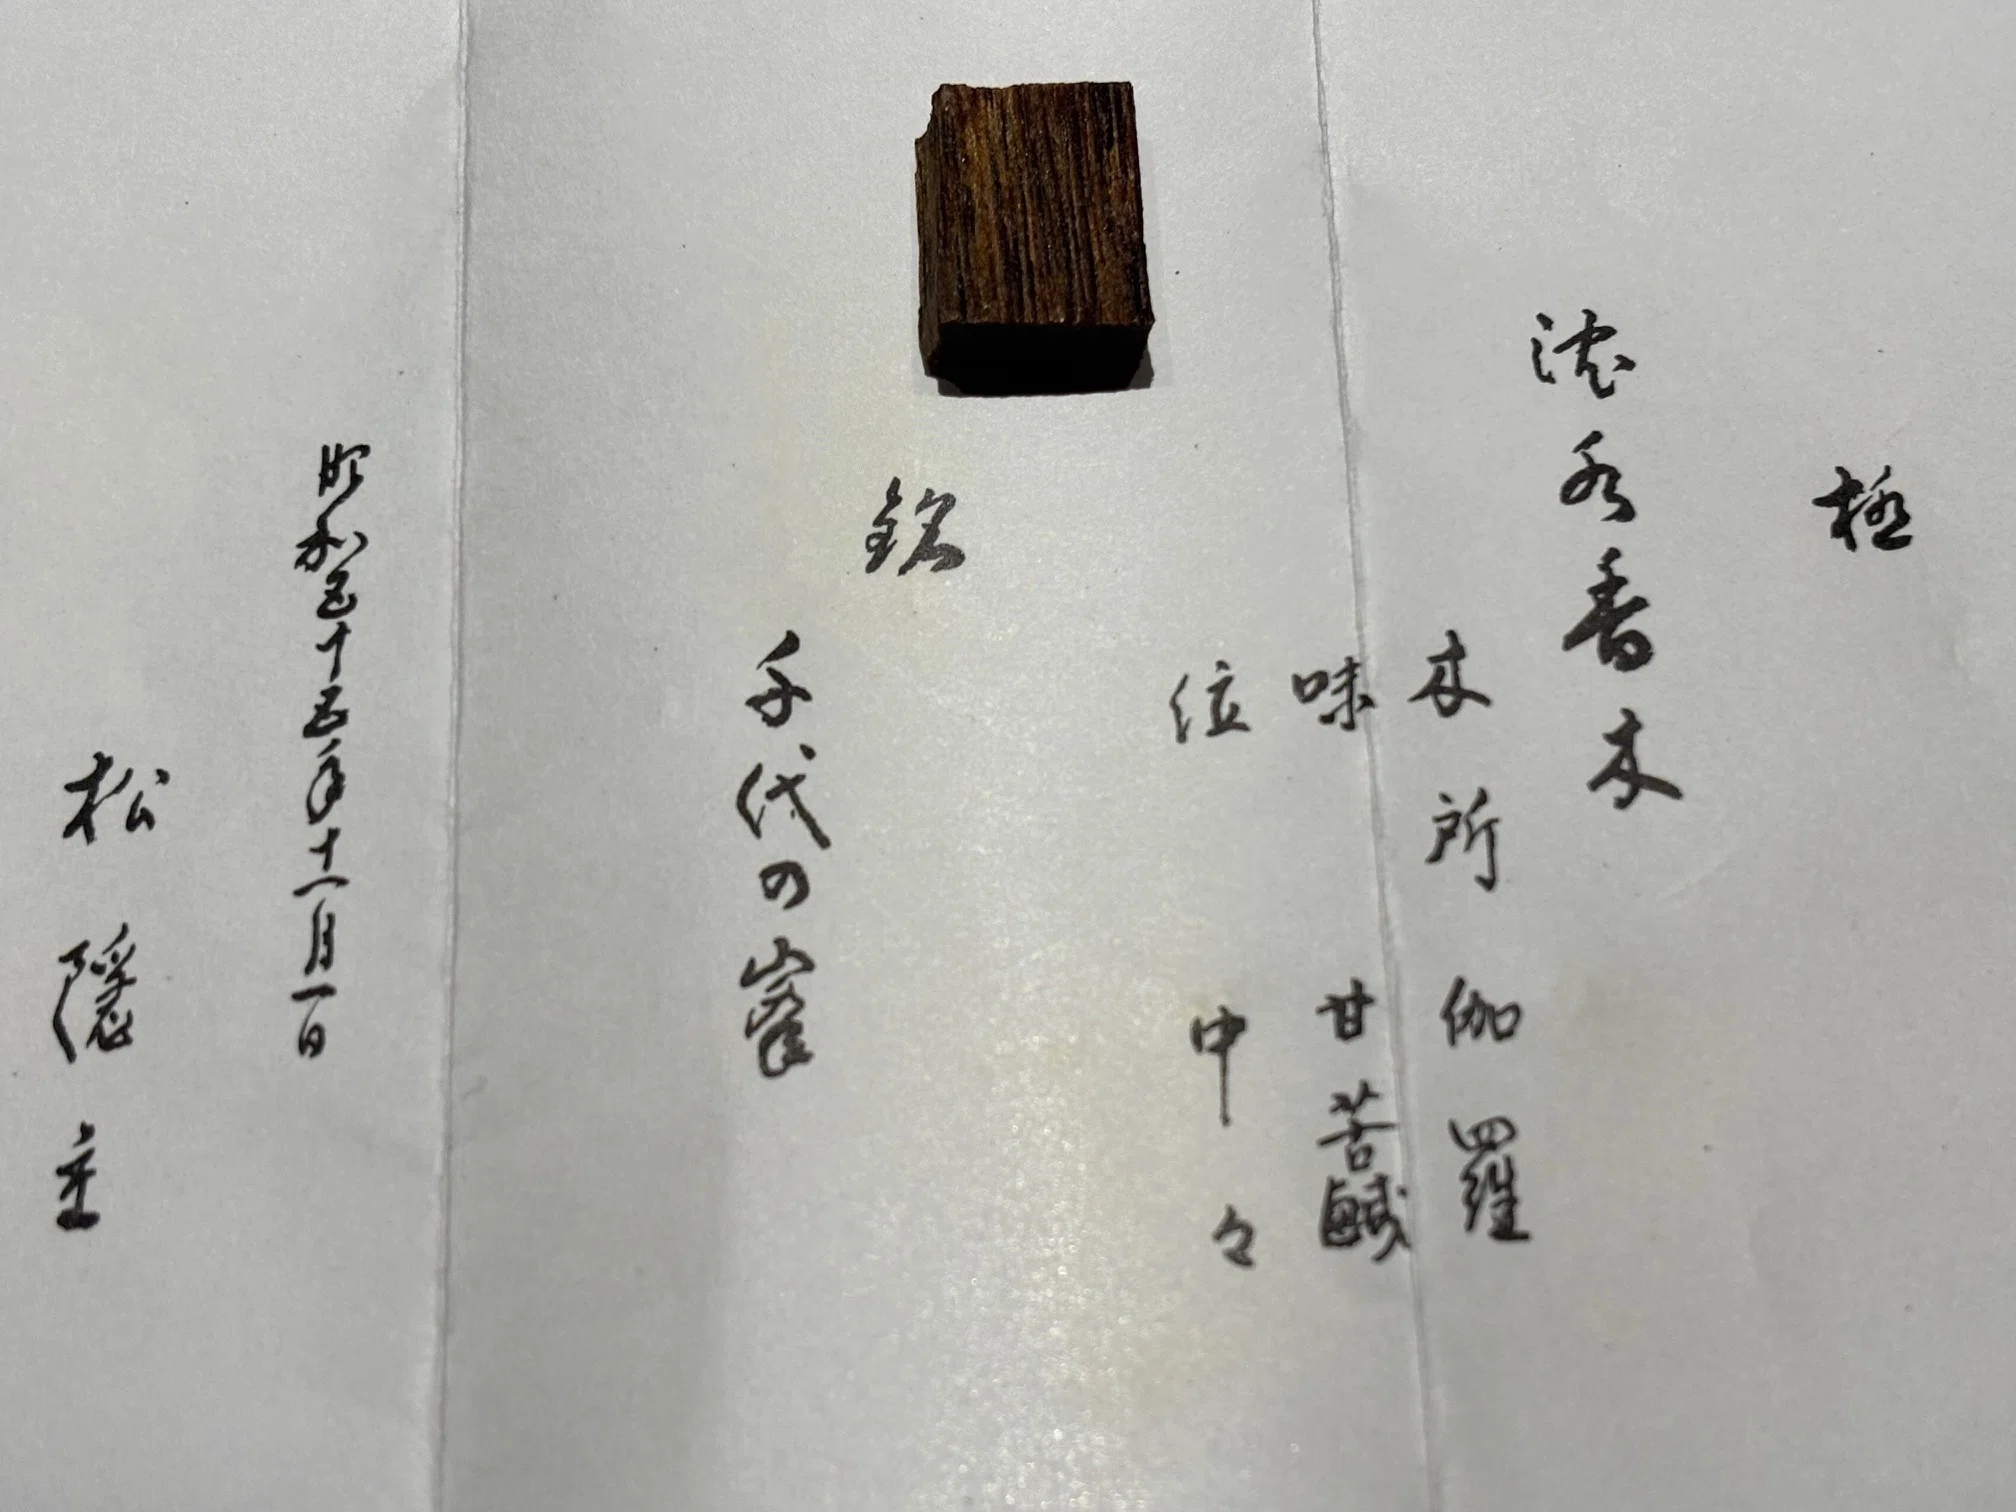 極
沈水香木
木所 伽羅
味 甘苦鹹
位 中々
銘
千代の峯
昭和五十五年十一月一日
松隠主